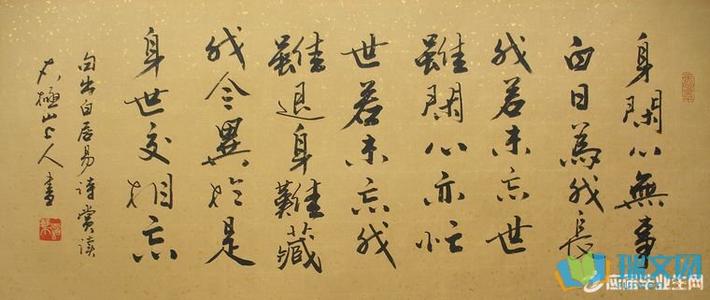 身閑心無事
白日為我長
我若未忘世
雖閑心亦忙
世若未忘我
雖退身難藏
我今異於是
身世交相忘
句出白居易诗赏读
太極山上人書
瑞文网
应届毕业生网